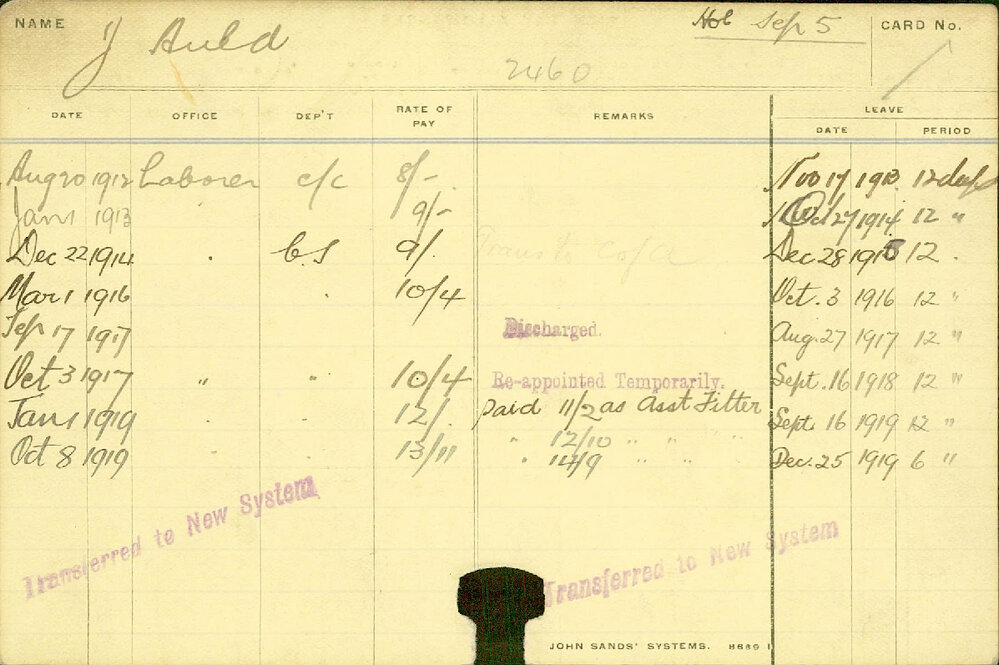 NAME J Auld Sep 5 CARD No.
2460
DATE OFFICE DEP'T RATE OF PAY REMARKS LEAVE
DATE PERIOD
Aug 20 1912 Laborer c/c 8/- Nov 17 1913 12 days
Jan 1 1913 " 9/- Oct 27 1914 12 "
Dec 22 1914 " 9/- Trans to Co/a Dec 28 1915 12 "
Mar 1 1916 10/4 Oct. 3 1916 12 "
Sep 17 1917 Discharged. Aug. 27 1917 12 "
Oct 3 1917 " " 10/4 Re-appointed Temporarily. Sept. 16 1918 12 "
Jan 1 1919 12/- paid 11/2 as Asst Fitter Sept. 16 1919 12 "
" 12/10 " " " "
Oct 8 1919 13/11 " 14/9 " " Dec. 25 1919 6 "
Transferred to New System
Transferred to New System
JOHN SANDS' SYSTEMS. 8689